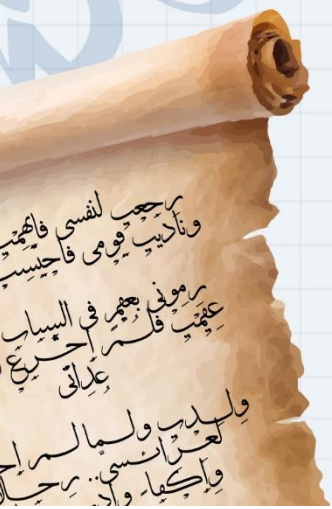 رجعت لنفسي فاتهمت
وناديت قومي فاحتسبت
رموني بعقم في الشباب
عقمت فلم أجزع
عداتي
ولدت ولما لم
لعرائسي..
وأكفاء